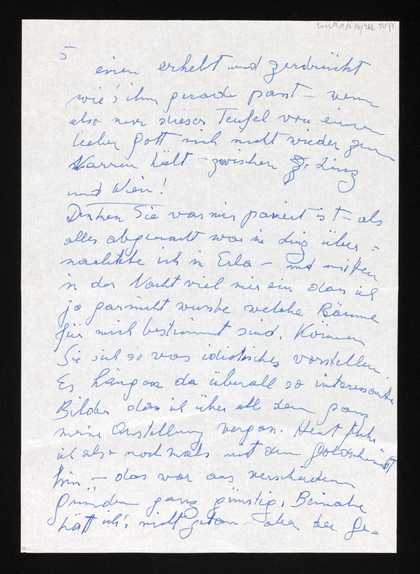 5
einen erhebt und zerdrückt
wie's ihm gerade passt – wenn
also nur dieser Teufel von einem
lieber Gott mich nicht wieder zum
Narren hält – zwischen Linz
und Wien!
Denken Sie was mir passiert ist – als
alles abgemacht war in Linz über-
nachtete ich in Erla – und mitten
in der Nacht viel mir ein das ich
ja garnicht wusste welche Räume
für mich bestimmt sind. Können
Sie sich so was idiotisches vorstellen.
Es hängen da überall so interessante
Bilder das ich über all dem ganz
meine Austellung vergass. Heut fuhr
ich also nochmals mit dem
hin – das war aus verschiedenen
Gründen ganz günstig. Beinahe
hätt ich's nicht getan – aber der Ge-